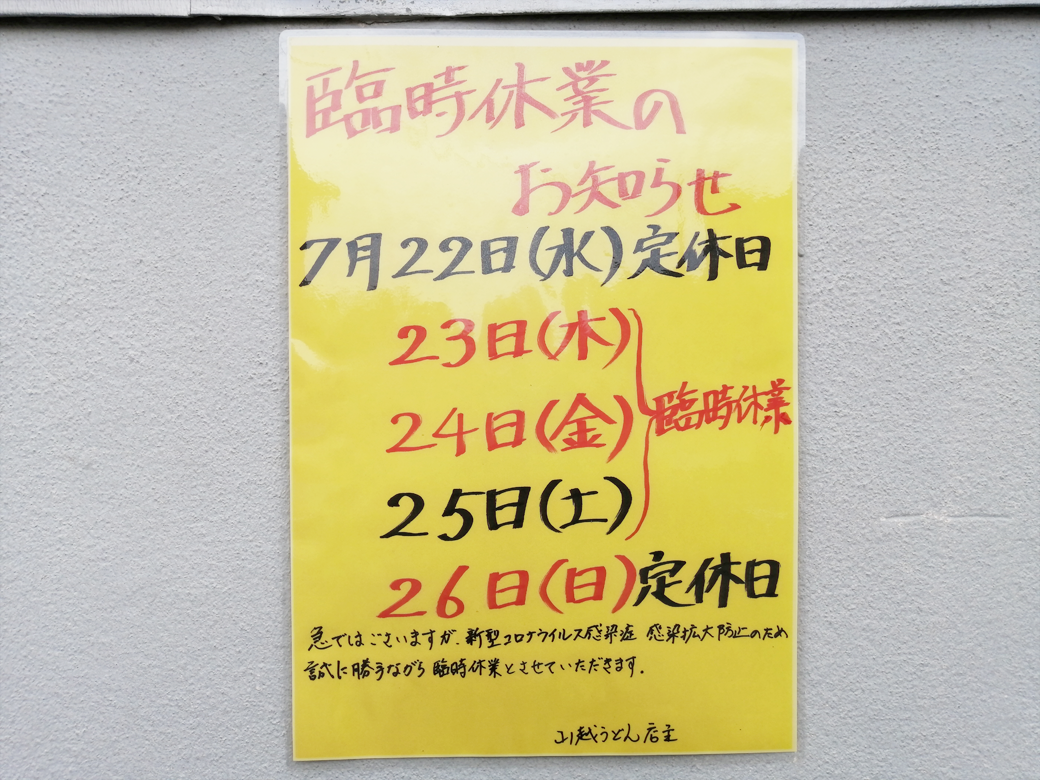 臨時休業の
お知らせ
7月22日(水)定休日
23日(木)
24日(金) 臨時休業
25日(土)
26日(日)定休日
急ではございますが、新型コロナウイルス感染症 感染拡大防止のため
誠に勝手ながら臨時休業とさせていただきます.
山越うどん 店主